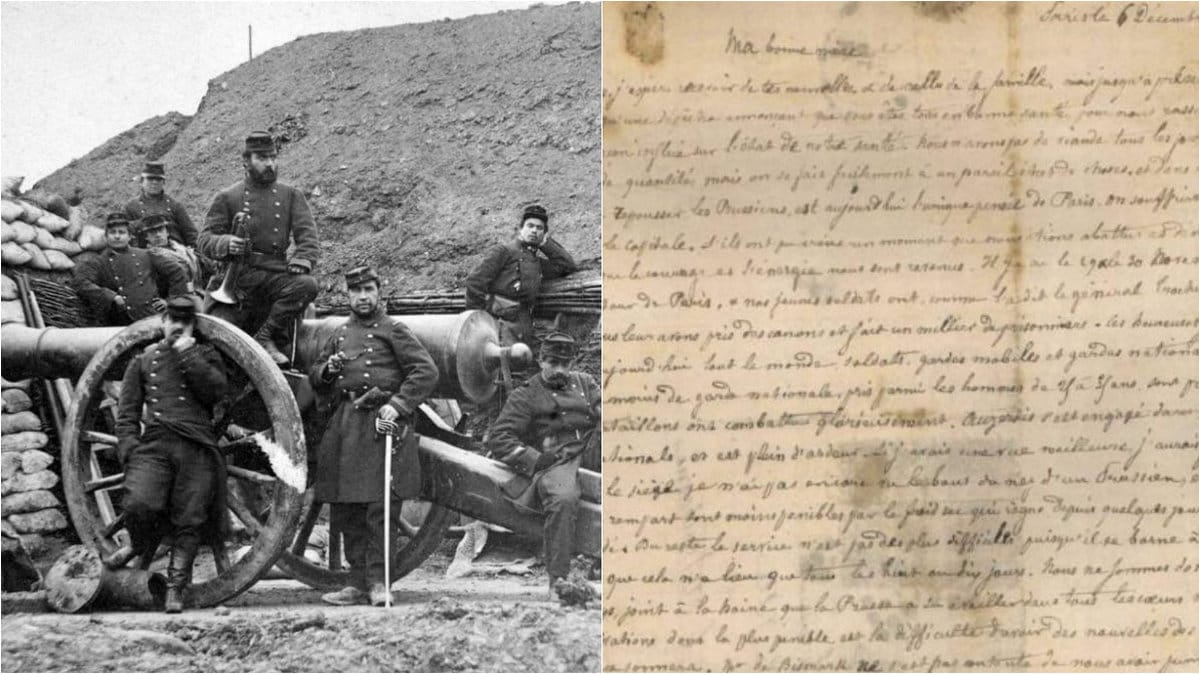 Paris le 6 Décemb
Ma bonne mère
j'espère recevoir de tes nouvelles & de celles de la famille, mais jusqu'à prés
une dépêche annonçant que vous êtes tous en bonne santé pour nous rass
influé sur l'état de notre santé. Nous n'avons pas de viande tous les jo
quantité mais on se fait facilement à un pareil état de choses, et dans
repousser les Prussiens, est aujourd'hui l'unique pensée de Paris. On souffri
la capitale, s'ils ont pu croire un moment que nous étions abattus et
le courage et l'énergie nous sont revenus. Il y a eu le 29 & le 30 Nove
tour de Paris, & nos jeunes soldats ont, comme l'a dit le général Troch
leur avons pris des canons et fait un millier de prisonniers. les
jourd'hui tout le monde soldats, gardes mobiles et gardes nationa
moins de garde nationale, pris parmi les hommes de 25 à 35 ans, sont
taillons ont combattu glorieusement. s'est engagé dans
tionale, et est plein d'ardeur. Si j'avais une vue meilleure j'aurai
le siège je n'ai pas encore vu le bout du nez d'un Prussien,
rempart sont moins pénibles par le froid sec qui règne depuis quelques jou
Du reste le service n'est pas des plus difficiles puisqu'il se borne à
que cela n'a lieu que tous les huit ou dix jours. Nous ne sommes
joint à la haine que la Prusse a su éveiller dans tous les cœurs
rations dont la plus pénible est la difficulté d'avoir des nouvelles de
sonnera. Mr de Bismark ne s'est pas contenté de nous avoir